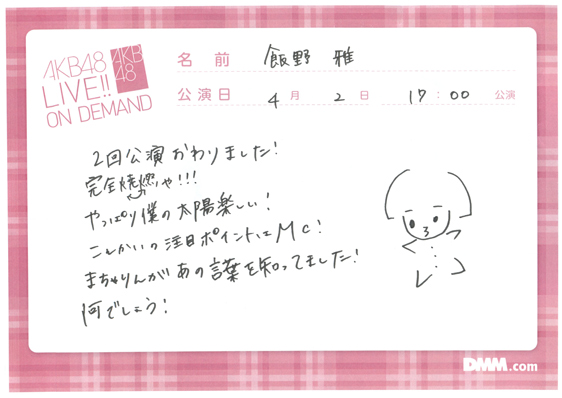 AKB48
LIVE!!
ON DEMAND
AKB
48
名前 飯野 雅
公演日 4月 2日 17:00 公演
2回公演おわりました!
完全焼燃や!!!
やっぱり僕の太陽楽しい!
こんかいの注目ポイントはMC!
まちゃりんがあの言葉を知ってました!
何でしょう!
DMM.com